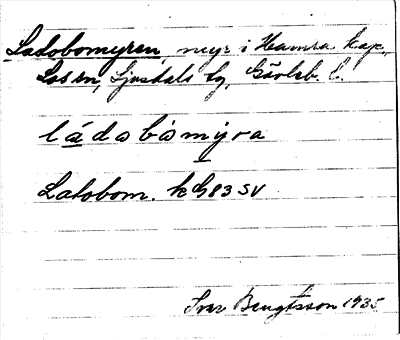 Ladobomyren, myr i Hamra kap.,
Los sn, Ljusdals tg, Gävleb. l.
ládobómýra
Latobom. kG83SV
Ivar Bengtsson 1935